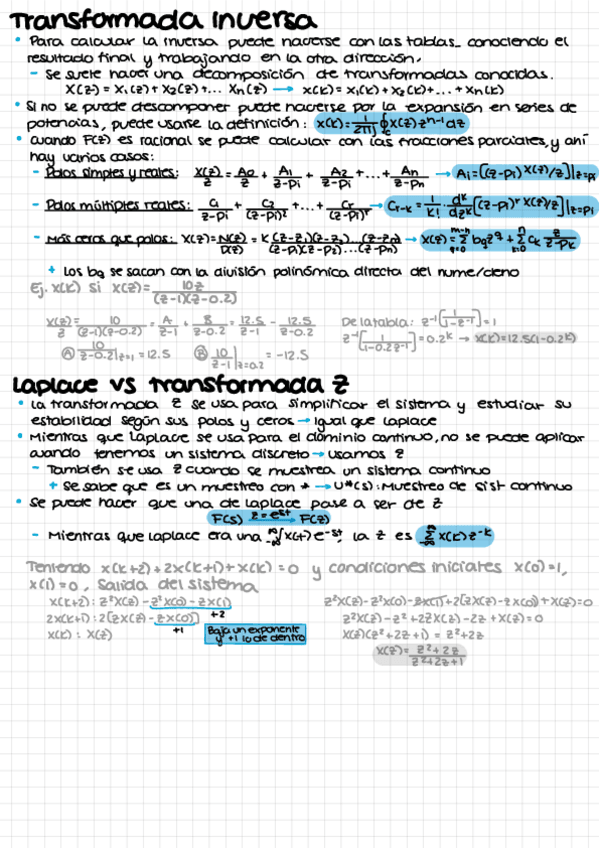 Transformada Inversa
• Para calcular la inversa puede hacerse con las tablas_ conociendo el
resultado final y trabajando en la otra dirección.
- Se suele hacer una decomposición de transformadas conocidas.
X(z) = X₁(z) + X₂(z) + ... Xn(z) → x(k) = x₁(k) + x₂(k) + ... + xn(k)
• Si no se puede descomponer puede hacerse por la expansión en series de
potencias, puede usarse la definición: x(k) = 1/2πj ∮c X(z) z^(n-1) dz
• cuando F(z) es racional se puede calcular con las fracciones parciales, y ahí
hay varios casos:
- Polos simples y reales: X(z)/z = A₀/z + A₁/(z-p₁) + A₂/(z-p₁) + ... + An/(z-pn) → Ai = [(z-pi) X(z)/z]|z=pi
- Polos múltiples reales: C₁/(z-pi) + C₂/(z-pi)² + ... + Cr/(z-pi)^r → Cr-k = 1/k! · d^k/dz^k [(z-pi)^r X(z)/z]|z=pi
- Más ceros que polos: X(z) = N(z)/D(z) = K (z-z₁)(z-z₂)...(z-zn)/(z-p₁)(z-p₂)...(z-pn) → X(z) = Σ(q=0, m-n) bq z^q + Σ(k=0, n) Ck z/(z-pk)
+ Los bq se sacan con la división polinómica directa del nume/deno
Ej. x(k) si X(z) = 10z/(z-1)(z-0.2)
X(z)/z = 10/(z-1)(z-0.2) = A/(z-1) + B/(z-0.2) = 12.5/(z-1) - 12.5/(z-0.2)
Ⓐ 10/(z-0.2)|z=1 = 12.5 Ⓑ 10/(z-1)|z=0.2 = -12.5
De la tabla: z⁻¹[1/(1-z⁻¹)] = 1
z⁻¹[1/(1-0.2z⁻¹)] = 0.2^k → x(k) = 12.5(1-0.2^k)
Laplace vs transformada Z
• La transformada Z se usa para simplificar el sistema y estudiar su
estabilidad según sus polos y ceros → Igual que Laplace
• Mientras que Laplace se usa para el dominio continuo, no se puede aplicar
cuando tenemos un sistema discreto → usamos Z
- También se usa Z cuando se muestrea un sistema continuo
+ Se sabe que es un muestreo con * → U*(s): Muestreo de sist continuo
• Se puede hacer que una de laplace pase a ser de Z
F(s) z = e^st → F(z)
- Mientras que laplace era una ∫(-∞, ∞) x(t) e^(-st), la Z es Σ(-∞, ∞) x(k) z^(-k)
Teniendo x(k+2) + 2x(k+1) + x(k) = 0 y condiciones iniciales x(0) = 1,
x(1) = 0, Salida del sistema
x(k+2): z²X(z) - z²x(0) - zx(1)
2x(k+1): 2[zX(z) - zx(0)] +2
x(k): X(z) +1
Baja un exponente
y +1 lo de dentro
z²X(z) - z²x(0) - zx(1) + 2[zX(z) - zx(0)] + X(z) = 0
z²X(z) - z² + 2zX(z) - 2z + X(z) = 0
X(z)(z² + 2z + 1) = z² + 2z
X(z) = z² + 2z/z² + 2z + 1